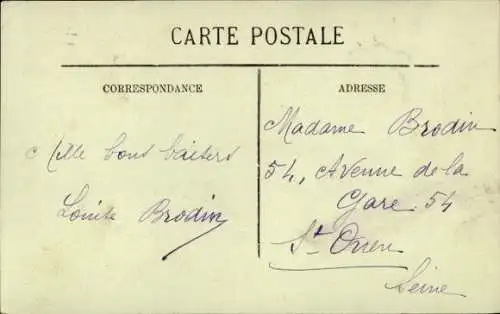 CARTE POSTALE
CORRESPONDANCE
Mille bons baisers
Brodin
ADRESSE
Madame Brodin
54, Avenue de la
Gare. 54
St Ouen
Seine